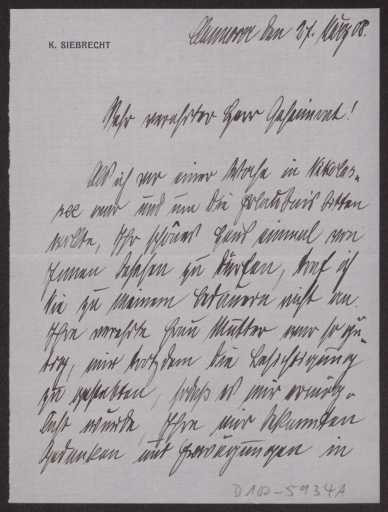 K. SIEBRECHT
Hannover den 27. März 08.
Sehr verehrter Herr Geheimrat!
Als ich vor einer Woche in Nikolas-
see war und um die Erlaubnis bitten
wollte, Ihr schönes Haus einmal von
Innen besehen zu dürfen, traf ich
Sie zu meinem Bedauern nicht an.
Ihre verehrte Frau Mutter war so gü-
tig, mir trotzdem die Besichtigung
zu gestatten, sodaß es mir ermög-
licht wurde, Ihre mir bekannten
Gedanken und Erwägungen in
D102-5934A